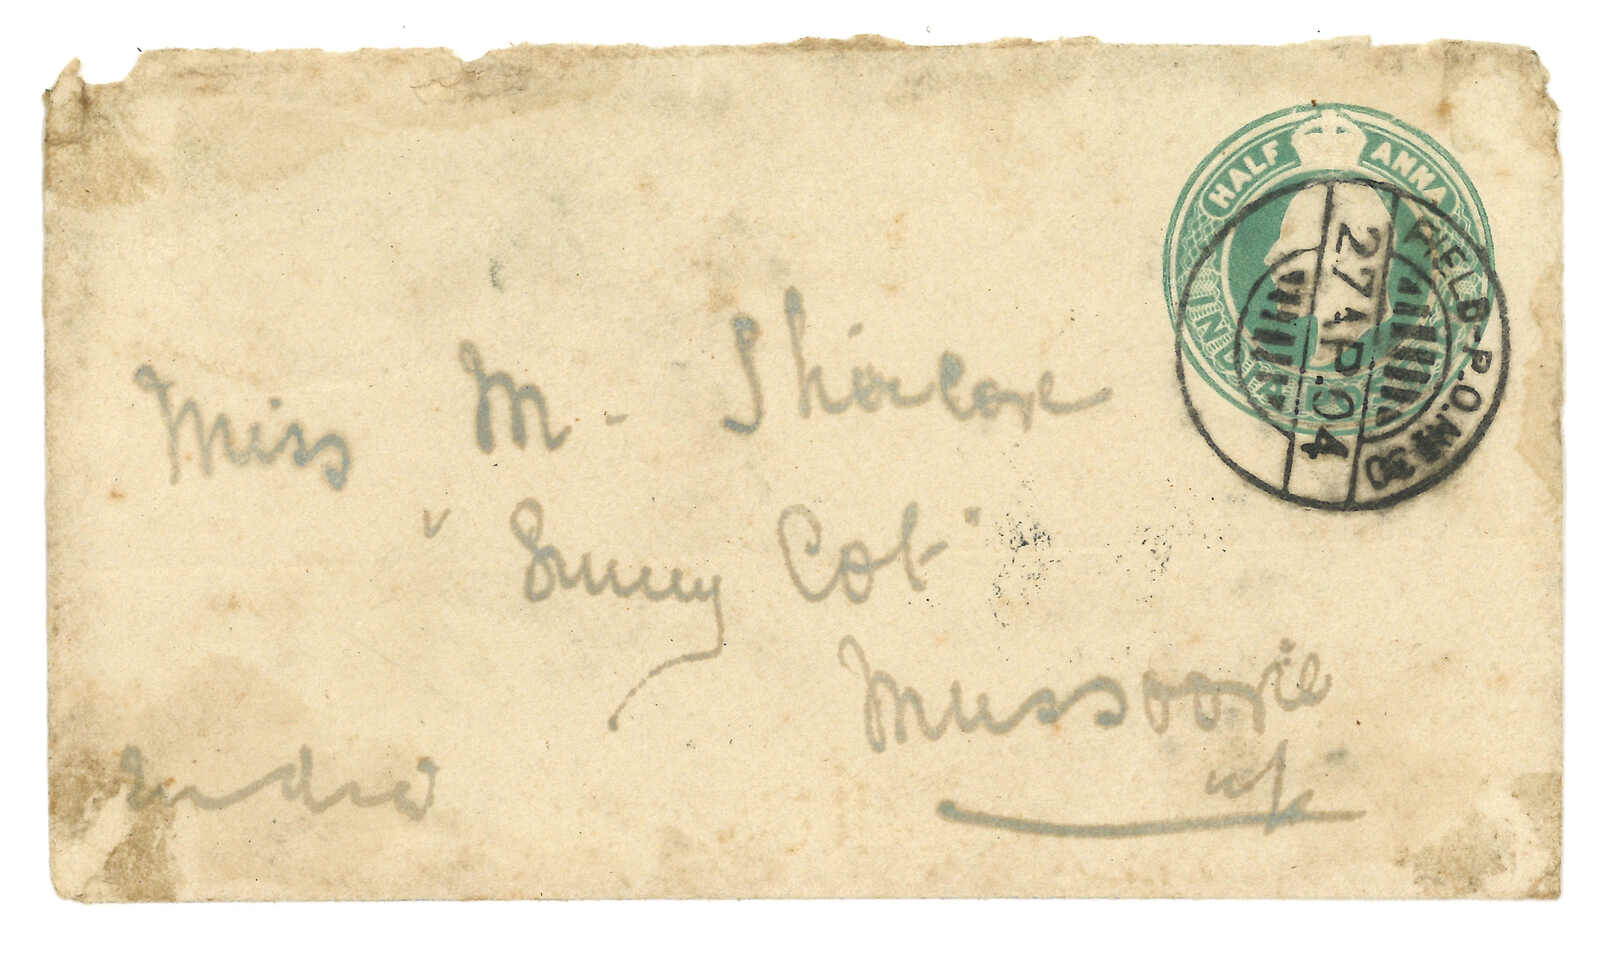 HALF ANNA
INDIA
FIELD-P.O.No 30
27 AP.04
Miss M. Shircore
"Sunny Cot"
Mussoorie
India